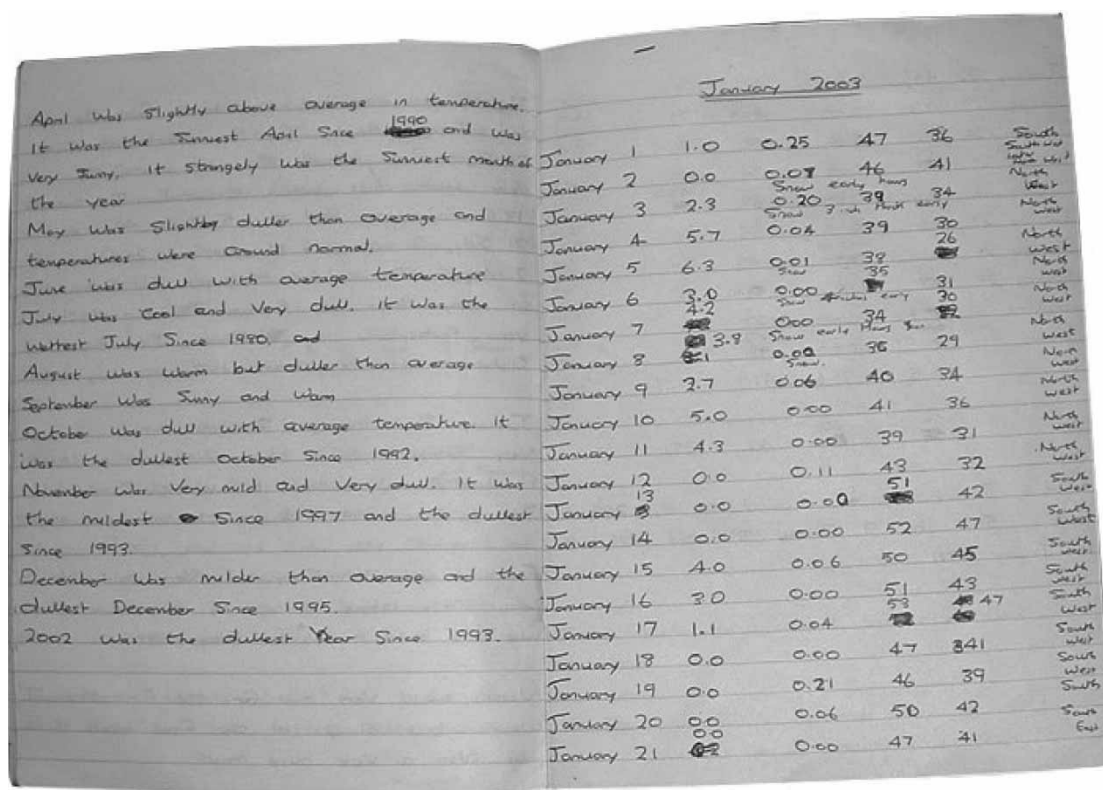 April was slightly above average in temperature.
It was the Sunniest April Since 1990 and was
very Sunny. It strangely was the Sunniest month of
the year
May was Slightly duller than average and
temperatures were around normal.
June was dull with average temperature
July was cool and very dull. It was the
wettest July Since 1980.
August was warm but duller than average
September was Sunny and warm
October was dull with average temperature. It
was the dullest October Since 1992.
November was very mild and very dull. It was
the mildest Since 1997 and the dullest
Since 1993.
December was milder than average and the
dullest December Since 1995.
2002 was the dullest Year Since 1993.
January 2003
January 1 1.0 0.25 47 36 South
January 2 0.0 0.07 46 41
Snow early hours
January 3 2.3 0.20 39 34 North West
Snow early
January 4 5.7 0.04 39 30 North West
January 5 6.3 0.01 38 26 North West
Snow
January 6 3.0 0.00 35 31 North West
Snow early
January 7 4.2 0.00 34 30 North West
Snow early
January 8 3.8 0.00 36 29 North West
Snow.
January 9 2.7 0.06 40 34 North West
January 10 5.0 0.00 41 36 North West
January 11 4.3 0.00 39 31 North West
January 12 0.0 0.11 43 32 North West
January 13 0.0 0.00 51 42 South West
January 14 0.0 0.00 52 47 South West
January 15 4.0 0.06 50 45 South West
January 16 3.0 0.00 51 43 South West
January 17 1.1 0.04 53 47 South West
January 18 0.0 0.00 47 41 South West
January 19 0.0 0.21 46 39 South West
January 20 0.0 0.06 50 42 South
January 21 0.0 0.00 47 41 South East